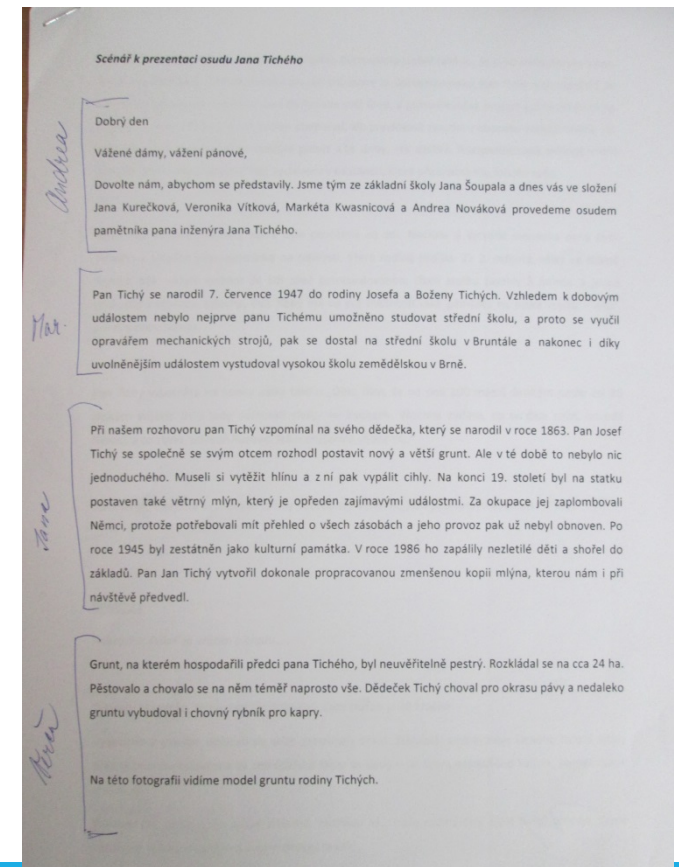 Scénář k prezentaci osudu Jana Tichého
Andrea
Dobrý den
Vážené dámy, vážení pánové,
Dovolte nám, abychom se představily. Jsme tým ze základní školy Jana Šoupala a dnes vás ve složení
Jana Kurečková, Veronika Vítková, Markéta Kwasnicová a Andrea Nováková provedeme osudem
pamětníka pana inženýra Jana Tichého.
Mar.
Pan Tichý se narodil 7. července 1947 do rodiny Josefa a Boženy Tichých. Vzhledem k dobovým
událostem nebylo nejprve panu Tichému umožněno studovat střední školu, a proto se vyučil
opravářem mechanických strojů, pak se dostal na střední školu v Bruntále a nakonec i díky
uvolněnějším událostem vystudoval vysokou školu zemědělskou v Brně.
Jana
Při našem rozhovoru pan Tichý vzpomínal na svého dědečka, který se narodil v roce 1863. Pan Josef
Tichý se společně se svým otcem rozhodl postavit nový a větší grunt. Ale v té době to nebylo nic
jednoduchého. Museli si vytěžit hlínu a z ní pak vypálit cihly. Na konci 19. století byl na statku
postaven také větrný mlýn, který je opředen zajímavými událostmi. Za okupace jej zaplombovali
Němci, protože potřebovali mít přehled o všech zásobách a jeho provoz pak už nebyl obnoven. Po
roce 1945 byl zestátněn jako kulturní památka. V roce 1986 ho zapálily nezletilé děti a shořel do
základů. Pan Jan Tichý vytvořil dokonale propracovanou zmenšenou kopii mlýna, kterou nám i při
návštěvě předvedl.
Grunt, na kterém hospodařili předci pana Tichého, byl neuvěřitelně pestrý. Rozkládal se na cca 24 ha.
Pěstovalo a chovalo se na něm téměř naprosto vše. Dědeček Tichý choval pro okrasu pávy a nedaleko
gruntu vybudoval i chovný rybník pro kapry.
Na této fotografii vidíme model gruntu rodiny Tichých.